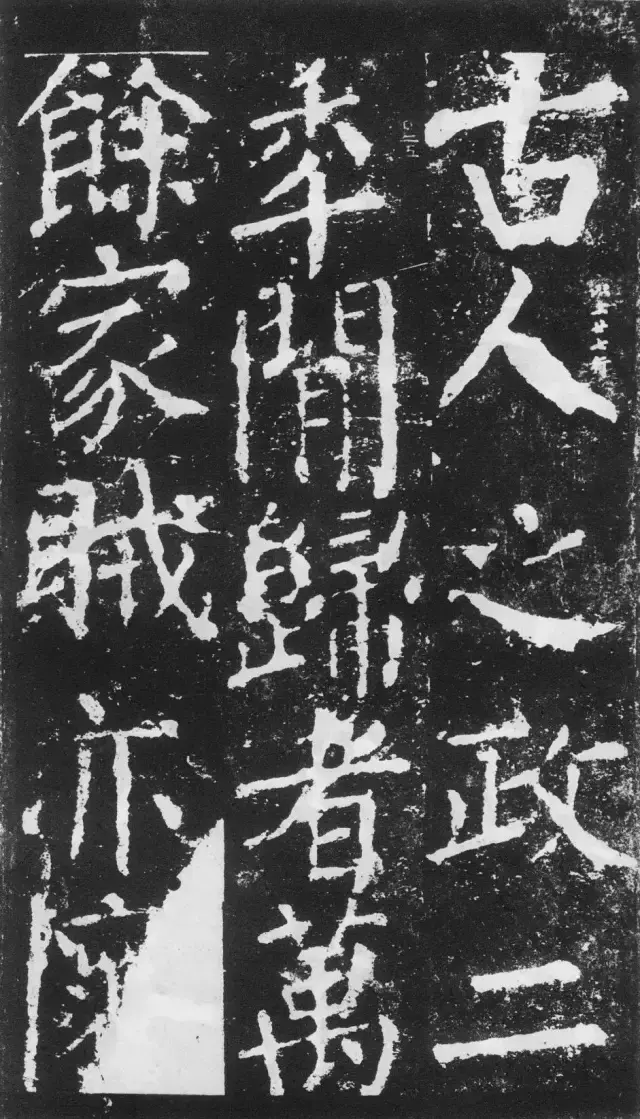 古人之政二
年間歸者萬
餘家賊亦懷